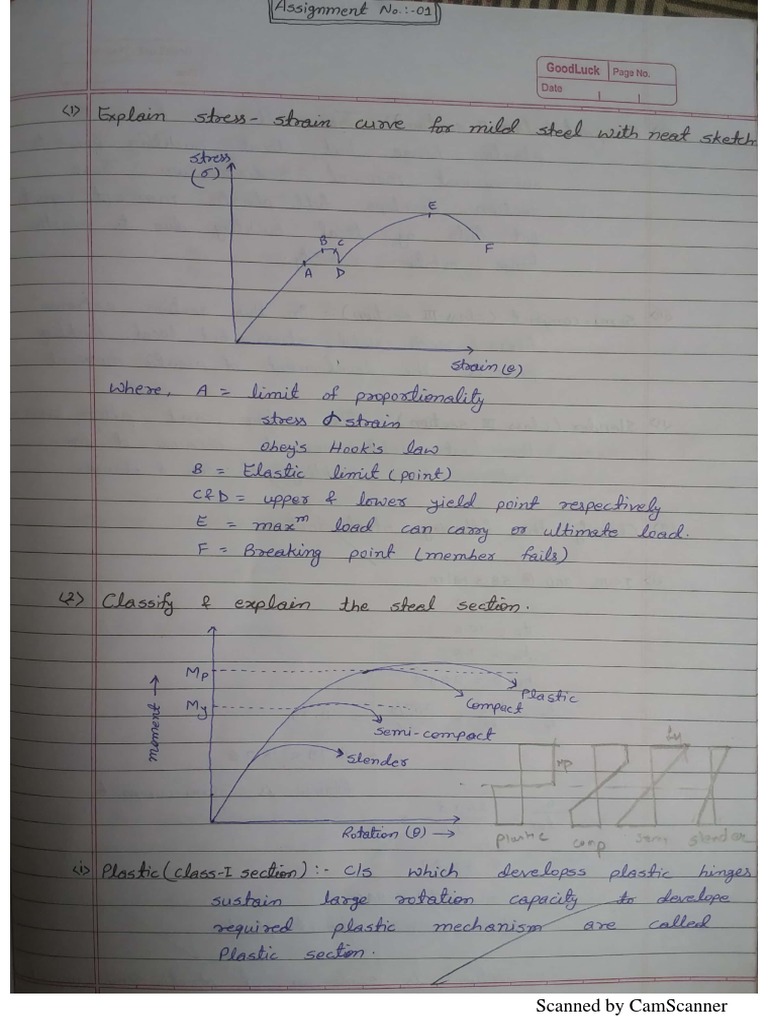 Assignment No.:-01
GoodLuck Page No.
Date
(1) Explain stress-strain curve for mild steel with neat sketch
stress
(σ)
E
B C
F
A D
strain (e)
where, A = limit of proportionality
stress α strain
obey's Hook's law
B = Elastic limit (point)
C & D = upper & lower yield point respectively
E = max^m load can carry or ultimate load.
F = Breaking point (member fails)
(2) Classify & explain the steel section.
Mp
Plastic
Compact
My
semi-compact
moment →
slender
Mp
Rotation (θ) →
plastic comp sem slender
(i) Plastic (class-I section) :- c/s which developss plastic hinges
sustain large rotation capacity to develope
required plastic mechanism are called
Plastic section.
Scanned by CamScanner